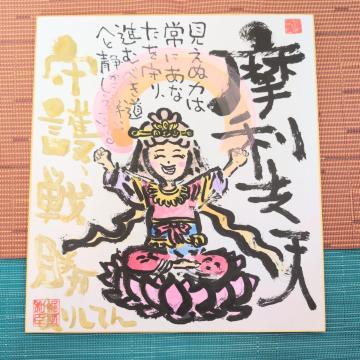 摩利支天
見えぬ力は
常にあな
たを守り、
進むべき道
へと静
守護、戦勝
まりしてん